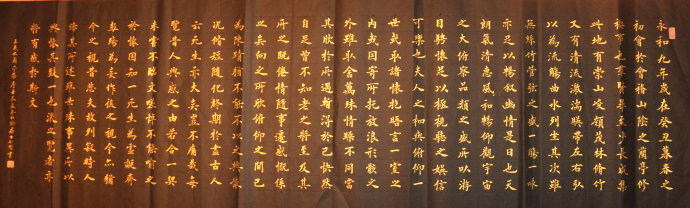 永和九年歲在癸丑暮春之
初會於會稽山陰之蘭亭修
禊事也羣賢畢至少長咸集
此地有崇山峻領茂林脩竹
又有清流激湍暎帶左右引
以為流觴曲水列坐其次雖
無絲竹管弦之盛一觴一詠
亦足以暢敘幽情是日也天
朗氣清惠風和暢仰觀宇宙
之大俯察品類之盛所以遊
目騁懷足以極視聽之娛信
可樂也夫人之相與俯仰一
世或取諸懷抱晤言一室之
內或因寄所託放浪形骸之
外雖趣舍萬殊靜躁不同當
其欣於所遇暫得於己快然
自足曾不知老之將至及其
所之既倦情隨事遷感慨係
之矣向之所欣俯仰之間已
為陳跡猶不能不以之興懷
況脩短隨化終期於盡古人
云死生亦大矣豈不痛哉每
覽昔人興感之由若合一契
未嘗不臨文嗟悼不能喻之
於懷固知一死生為虛誕齊
彭殤為妄作後之視今亦猶
今之視昔悲夫故列敘時人
錄其所述雖世殊事異所以
興懷其致一也後之覽者亦
將有感於斯文